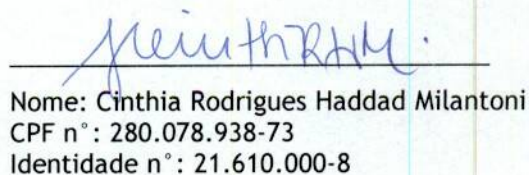 Nome: Cinthia Rodrigues Haddad Milantoni
CPF n°: 280.078.938-73
Identidade n°: 21.610.000-8